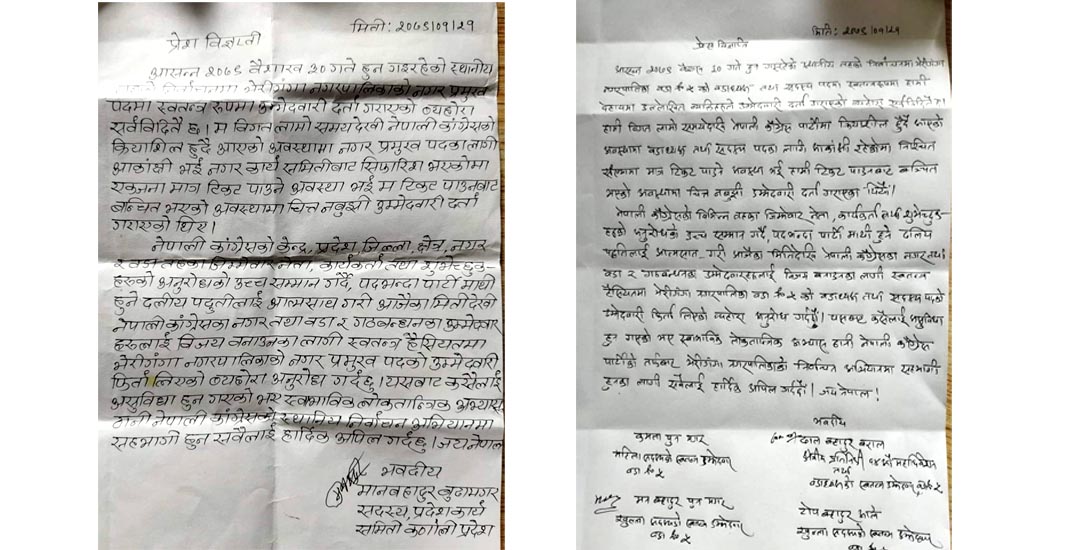 मिती: २०७९।०१।२१
प्रेश विज्ञप्ती
आसन्न २०७९ वैशाख ३० गते हुन गइरहेको स्थानीय
भेरीगंगा नगरपालिकाको नगर प्रमुख
पदमा स्वतन्त्र रुपमा उम्मेदवारी दर्ता गराएको व्यहोरा
सर्वविदितै छ। म विगत लामो समयदेखी नेपाली कांग्रेसको
क्रियाशिल हुदै आएको अवस्थामा नगर प्रमुख पदका लागी
आकांक्षी भई नगर कार्य समितीबाट सिफारिश भएकोमा
एकजना मात्र टिकट पाउने अवस्था भई म टिकट पाउनबाट
बन्चित भएको अवस्थामा चित्त नबुझी उम्मेदवारी दर्ता
गराएको थिए।
नेपाली कांग्रेसको केन्द्र, प्रदेश, जिल्ला, क्षेत्र, नगर
र वडा तहका जिम्मेवार नेता, कार्यकर्ता तथा शुभेच्छुक-
हरुको अनुरोधको उच्च सम्मान गर्दै पदभन्दा पार्टी माथी
हुने दलीय पद्दतीलाई आत्मसाथ गरी आजैका मितीदेखी
नेपाली कांग्रेसका नगर तथा वडा र गठबन्धनका उम्मेदवार
हरुलाई विजय वनाउनका लागी स्वतन्त्र हैसियतमा
भेरीगंगा नगरपालिकाको नगर प्रमुख पदको उम्मेदवारी
फिर्ता लिएको व्यहोरा अनुरोध गर्दछु। यसबाट कसैलाई
असुविधा हुन गएको भए स्वभाविक लोकतान्त्रिक अभ्यास
मानी नेपाली कांग्रेसको स्थानिय निर्वाचन अभियानमा
सहभागी हुन सवैलाई हार्दिक अपिल गर्दछु। जय नेपाल
भवदीय
मानबहादुर बुढामगर
सदस्य, प्रदेश कार्य
समिती कर्णाली प्रदेश
मिति: २०७९।०१।२१
प्रेस विज्ञप्ति
आसन्न २०७९ बैशाख ३० गते हुन गइरहेको स्थानीय तहको निर्वाचनमा भेरीगंगा
नगरपालिका वडा नं. ५ को वडाध्यक्ष तथा सदस्य पदमा स्वतन्त्ररुपमा हामी
उल्लेखित व्यक्तिहरुले उम्मेदवारी दर्ता गराएको व्यहोरा सर्वविदितै छ।
हामी विगत लामो समयदेखि नेपाली काँग्रेस पार्टीमा क्रियाशील हुँदै आएको
अवस्थामा वडाध्यक्ष तथा सदस्य पदका लागी आकांक्षी रहेकोमा निश्चित
संख्यामा मात्र टिकट पाउने अवस्था भई हामी टिकट पाउनबाट बञ्चित
भएको अवस्थामा चित्त नबुझी उम्मेदवारी दर्ता गराएका थियौँ।
नेपाली काँग्रेसको विभिन्न तहका जिम्मेवार नेता, कार्यकर्ता तथा शुभेच्छुक-
हरुको अनुरोधको उच्च सम्मान गर्दै, पदभन्दा पार्टी माथी हुने दलिय
पद्दतिलाई आत्मसात गरी आजैका मितिदेखि नेपाली काँग्रेसका नगर तथा
वडा र गठबन्धनका उम्मेदवारहरुलाई विजय बनाउनका लागी स्वतन्त्र
हैसियतमा भेरीगंगा नगरपालिका वडा नं. ५ को वडाध्यक्ष तथा सदस्य पदको
उम्मेदवारी फिर्ता लिएको व्यहोरा अनुरोध गर्दछौँ। यसबाट कसैलाई असुविधा
हुन गएको भए स्वाभाविक लोकतान्त्रिक अभ्यास हामी नेपाली काँग्रेस
पार्टीको तर्फबाट भेरीगंगा नगरपालिकाको निर्वाचन अभियानमा सहभागी
हुनका लागी सबैलाई हार्दिक अपिल गर्दछौँ। जय नेपाल!
भवदीय
कमला पुन मगर
महिला सदस्यको स्वतन्त्र उम्मेदवार
वडा नं ५
बहादुर
क्षेत्रीय प्रतिनिधि १४ औं महाधिवेशन
तथा
वडाध्यक्षको स्वतन्त्र उम्मेदवार
बहादुर पुन मगर
खुल्ला सदस्यको स्वतन्त्र उम्मेदवार
वडा नं ५
टोप बहादुर
खुल्ला सदस्यको स्वतन्त्र उम्मेदवार
वडा नं ५